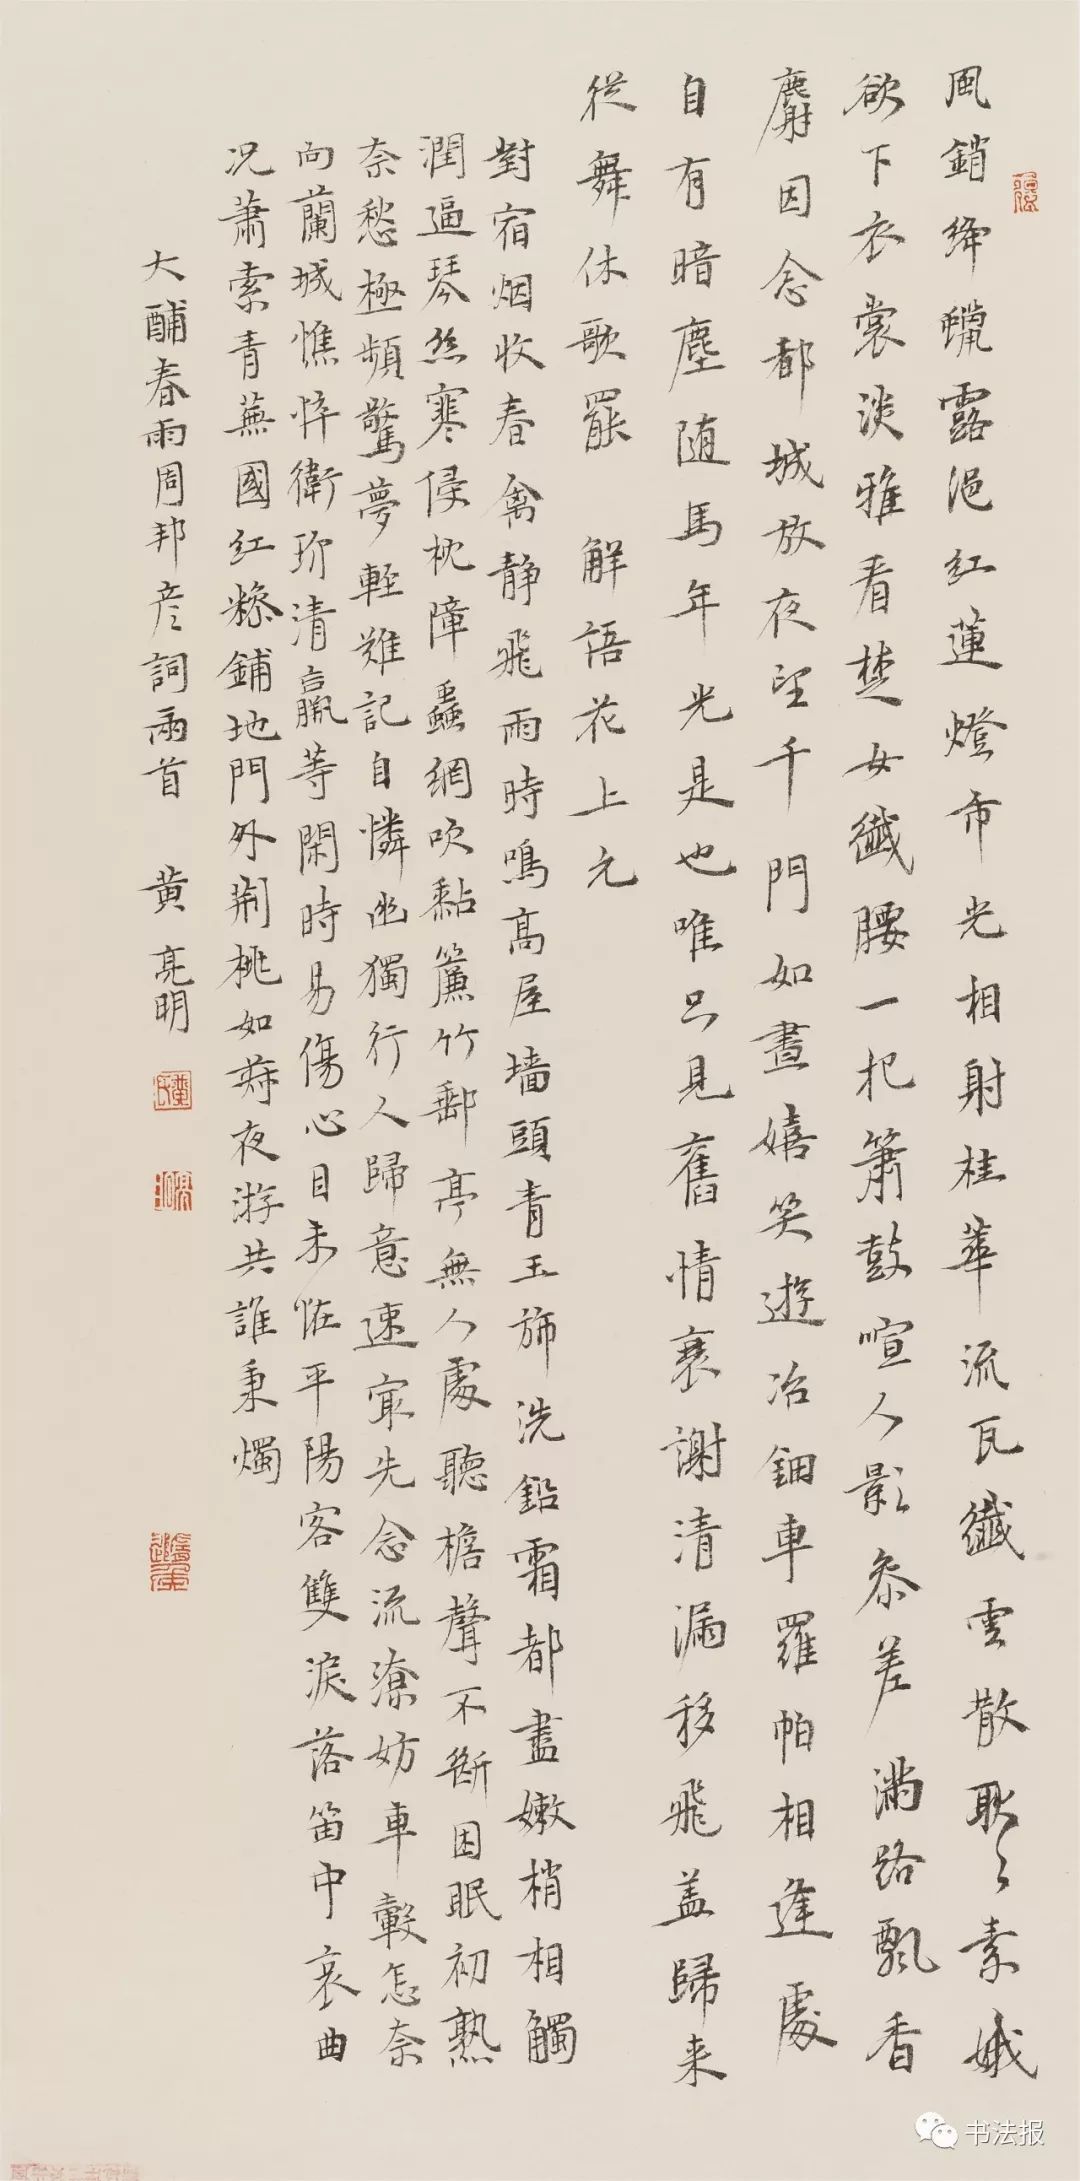 風銷絳蠟露浥紅蓮燈市光相射桂華流瓦纖雲散耿〻素娥
欲下衣裳淡雅看楚女纖腰一把簫鼓喧人影參差滿路飄香
麝因念都城放夜望千門如晝嬉笑遊冶鈿車羅帕相逢處
自有暗塵随馬年光是也唯只見舊情衰謝清漏移飛盖歸来
從舞休歌罷 解語花上元
對宿烟收春禽静飛雨時鳴高屋墙頭青玉旆洗鉛霜都盡嫩梢相觸
潤逼琴絲寒侵枕障蟲網吹黏簾竹郵亭無人處聽檐聲不斷困眠初熟
奈愁極頻驚夢輕難記自憐幽獨行人歸意速寂先念流潦妨車轂怎奈
向蘭城憔悴衛玠清羸等閑時易傷心目未怪平陽客雙淚落笛中哀曲
况蕭索青蕪國红糝鋪地門外荆桃如菽夜游共誰秉燭
大酺春雨周邦彦詞兩首 黄亮明
书法报